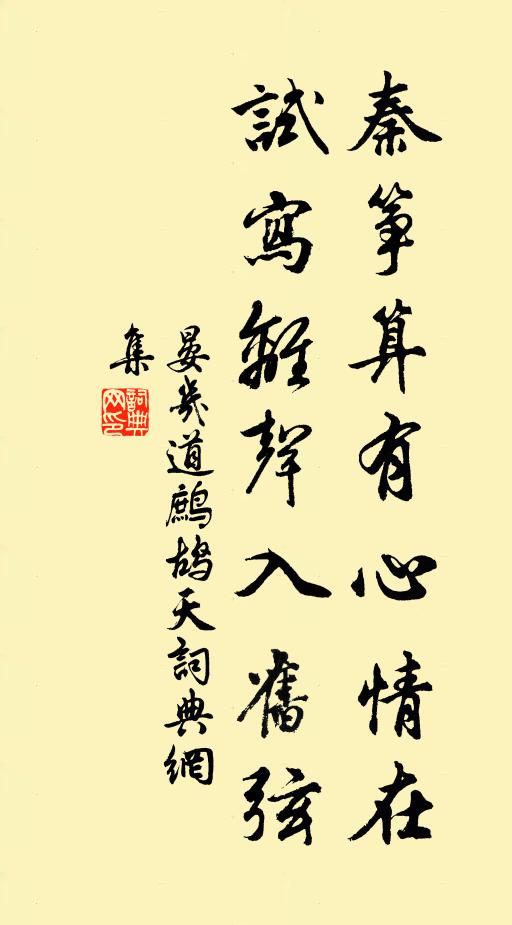 秦箏算有心情在
試寫離聲入舊弦
晏幾道鷓鴣天詞典網
集
詞典
网印